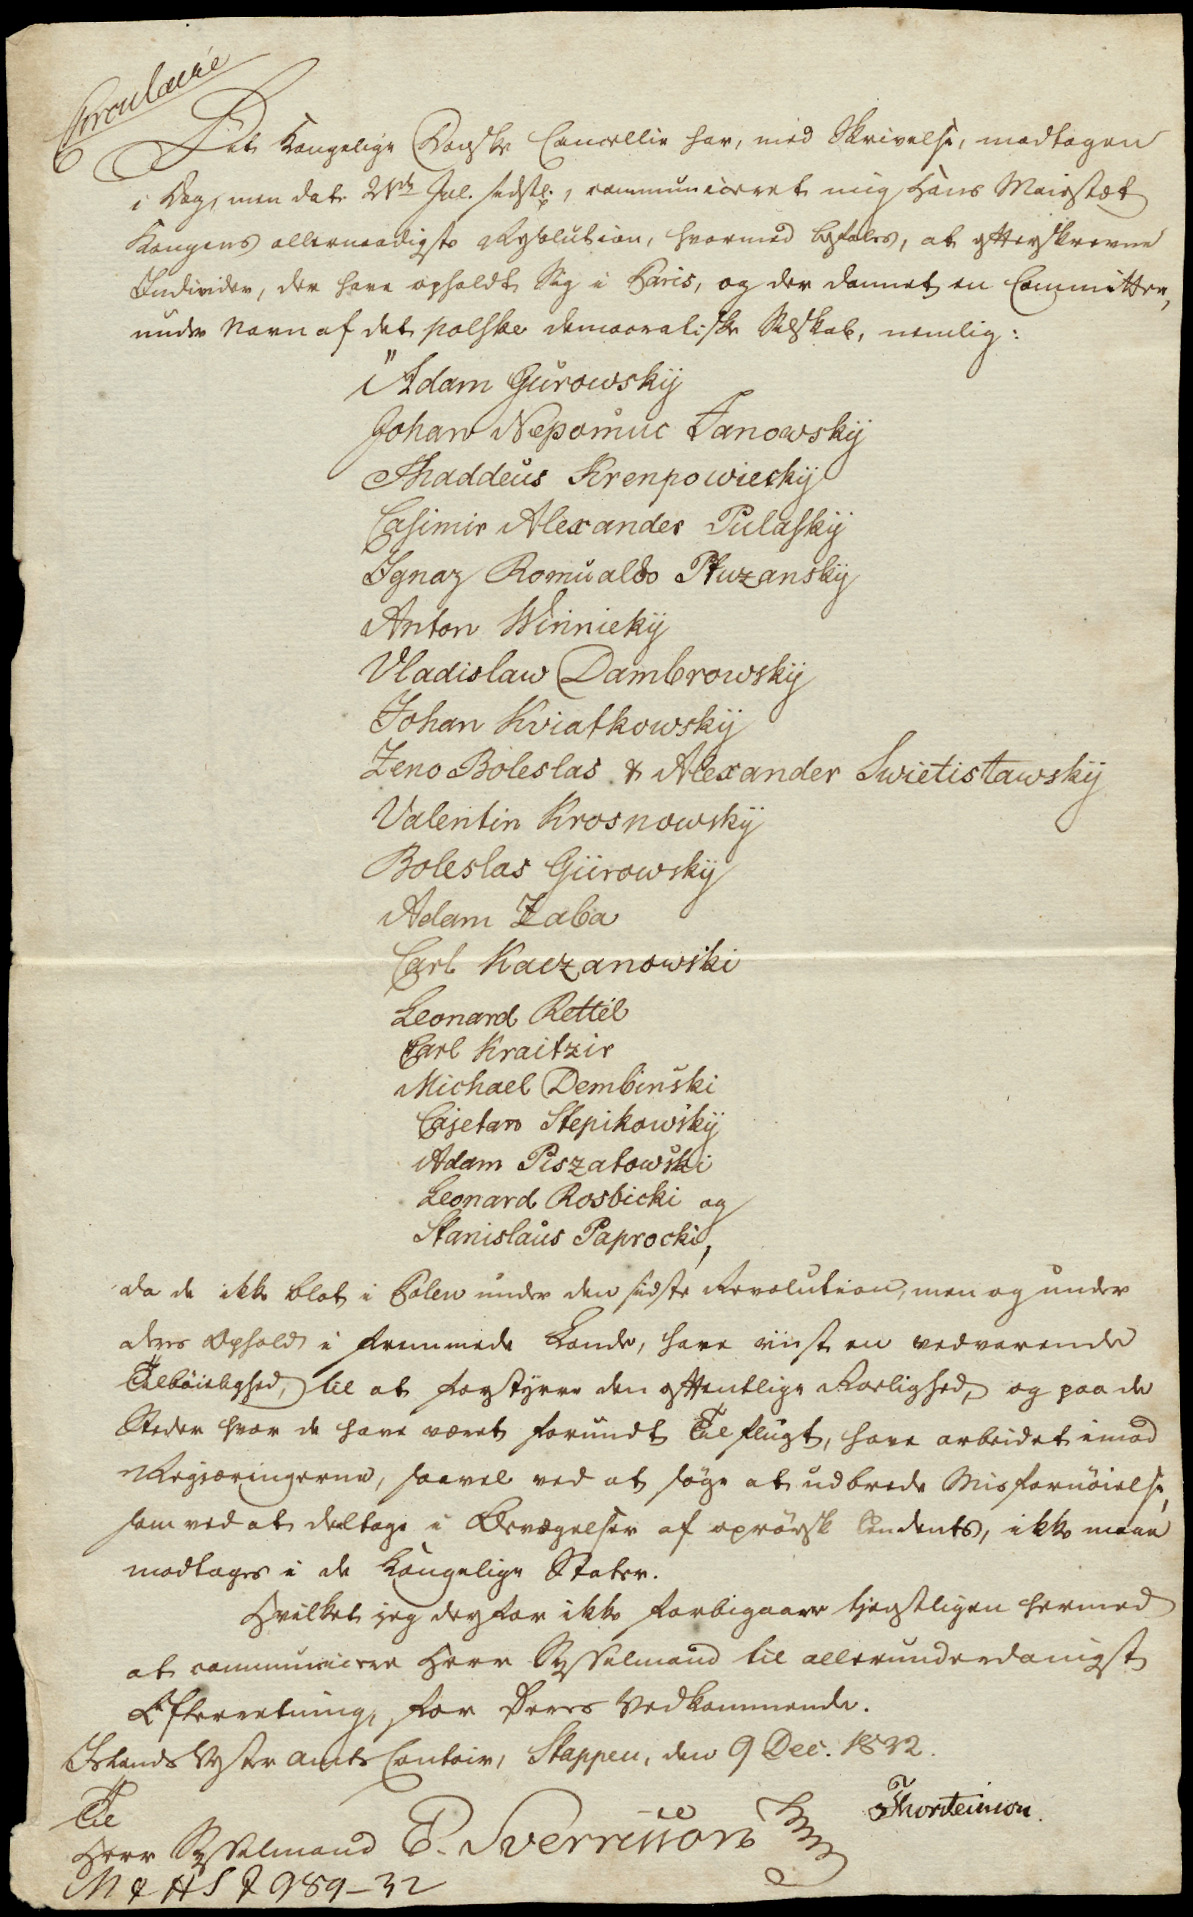 Circulaire
Det Kongelige Danske Cancellie har, med Skrivelse, modtagen
i Dag, men dat. 28de Jul. sidstl., communiceret mig Hans Majestæt
Kongens allernaadigste Resolution, hvormed befales, at efterskrevne
Individer, der have opholdt Sig i Paris, og der dannet en Committee,
under Navn af det polske democratiske Selskab, nemlig:
"Adam Gurowskÿ
Johan Nepomuc Janowskÿ
Thaddeus Krenpowieckÿ
Casimir Alexander Pulaskÿ
Ignaz Romualdo Pluzanskÿ
Anton Winniekÿ
Vladislaw Dambrowskÿ
Johan Kviatkowskÿ
Zeno Boleslas & Alexander Swietislawskÿ
Valentin Krosnowskÿ
Boleslas Gurowskÿ
Adam Zaba
Carl Kaczanowski
Leonard Rettel
Carl Kraitzir
Michael Dembinski
Cajetan Stepikowskÿ
Adam Piszatowski
Leonard Rosbicki og
Stanislaus Paprocki,
da de ikke blot i Polen under den sidste Revolution, men og under
deres Ophold i fremmede Lande, have viist en vedvarende
Tilbøielighed, til at forstyrre den offentlige Roelighed, og paa de
Steder hvor de have været forundt Tilflugt, have arbeidet imod
Regieringerne, saavel ved at søge at udbrede Misfornøielse,
som ved at deeltage i Bevægelser af oprørsk Tendents, ikke maae
modtages i de Kongelige Stater.
Hvilket jeg derfor ikke forbigaaer tjenstligen hermed
at communicere Herr Sysselmand til allerunderdanigst
Efterretning, for Deres Vedkommende.
Islands Vester Amts Contoir, Stappen, den 9 Dec. 1832.
Thorsteinson.
Til
Herr Sysselmand E. Sverrisson
M & H S & 989-32